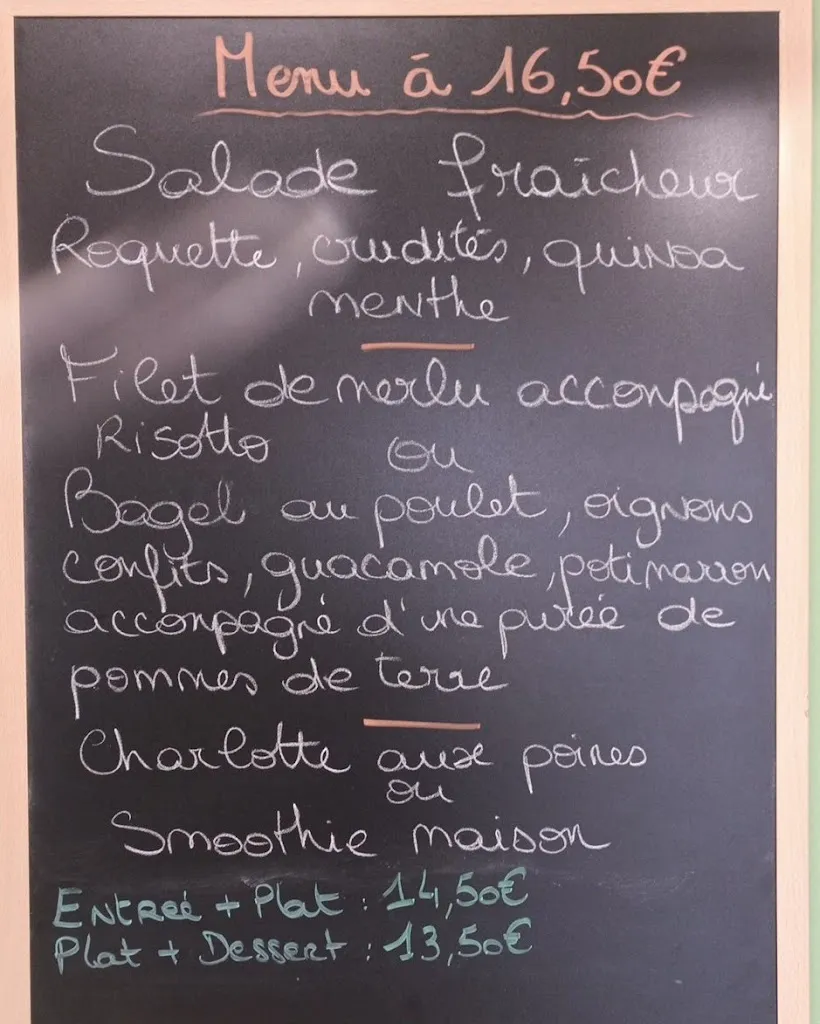 Menu à 16,50€
Salade fraîcheur
Roquette, crudités, quinoa
menthe
Filet de merlu accompagné
Risotto ou
Bagel au poulet, oignons
confits, guacamole, potimarron
accompagné d'une purée de
pommes de terre
Charlotte aux poires
ou
Smoothie maison
Entrée + Plat : 14,50€
Plat + Dessert : 13,50€